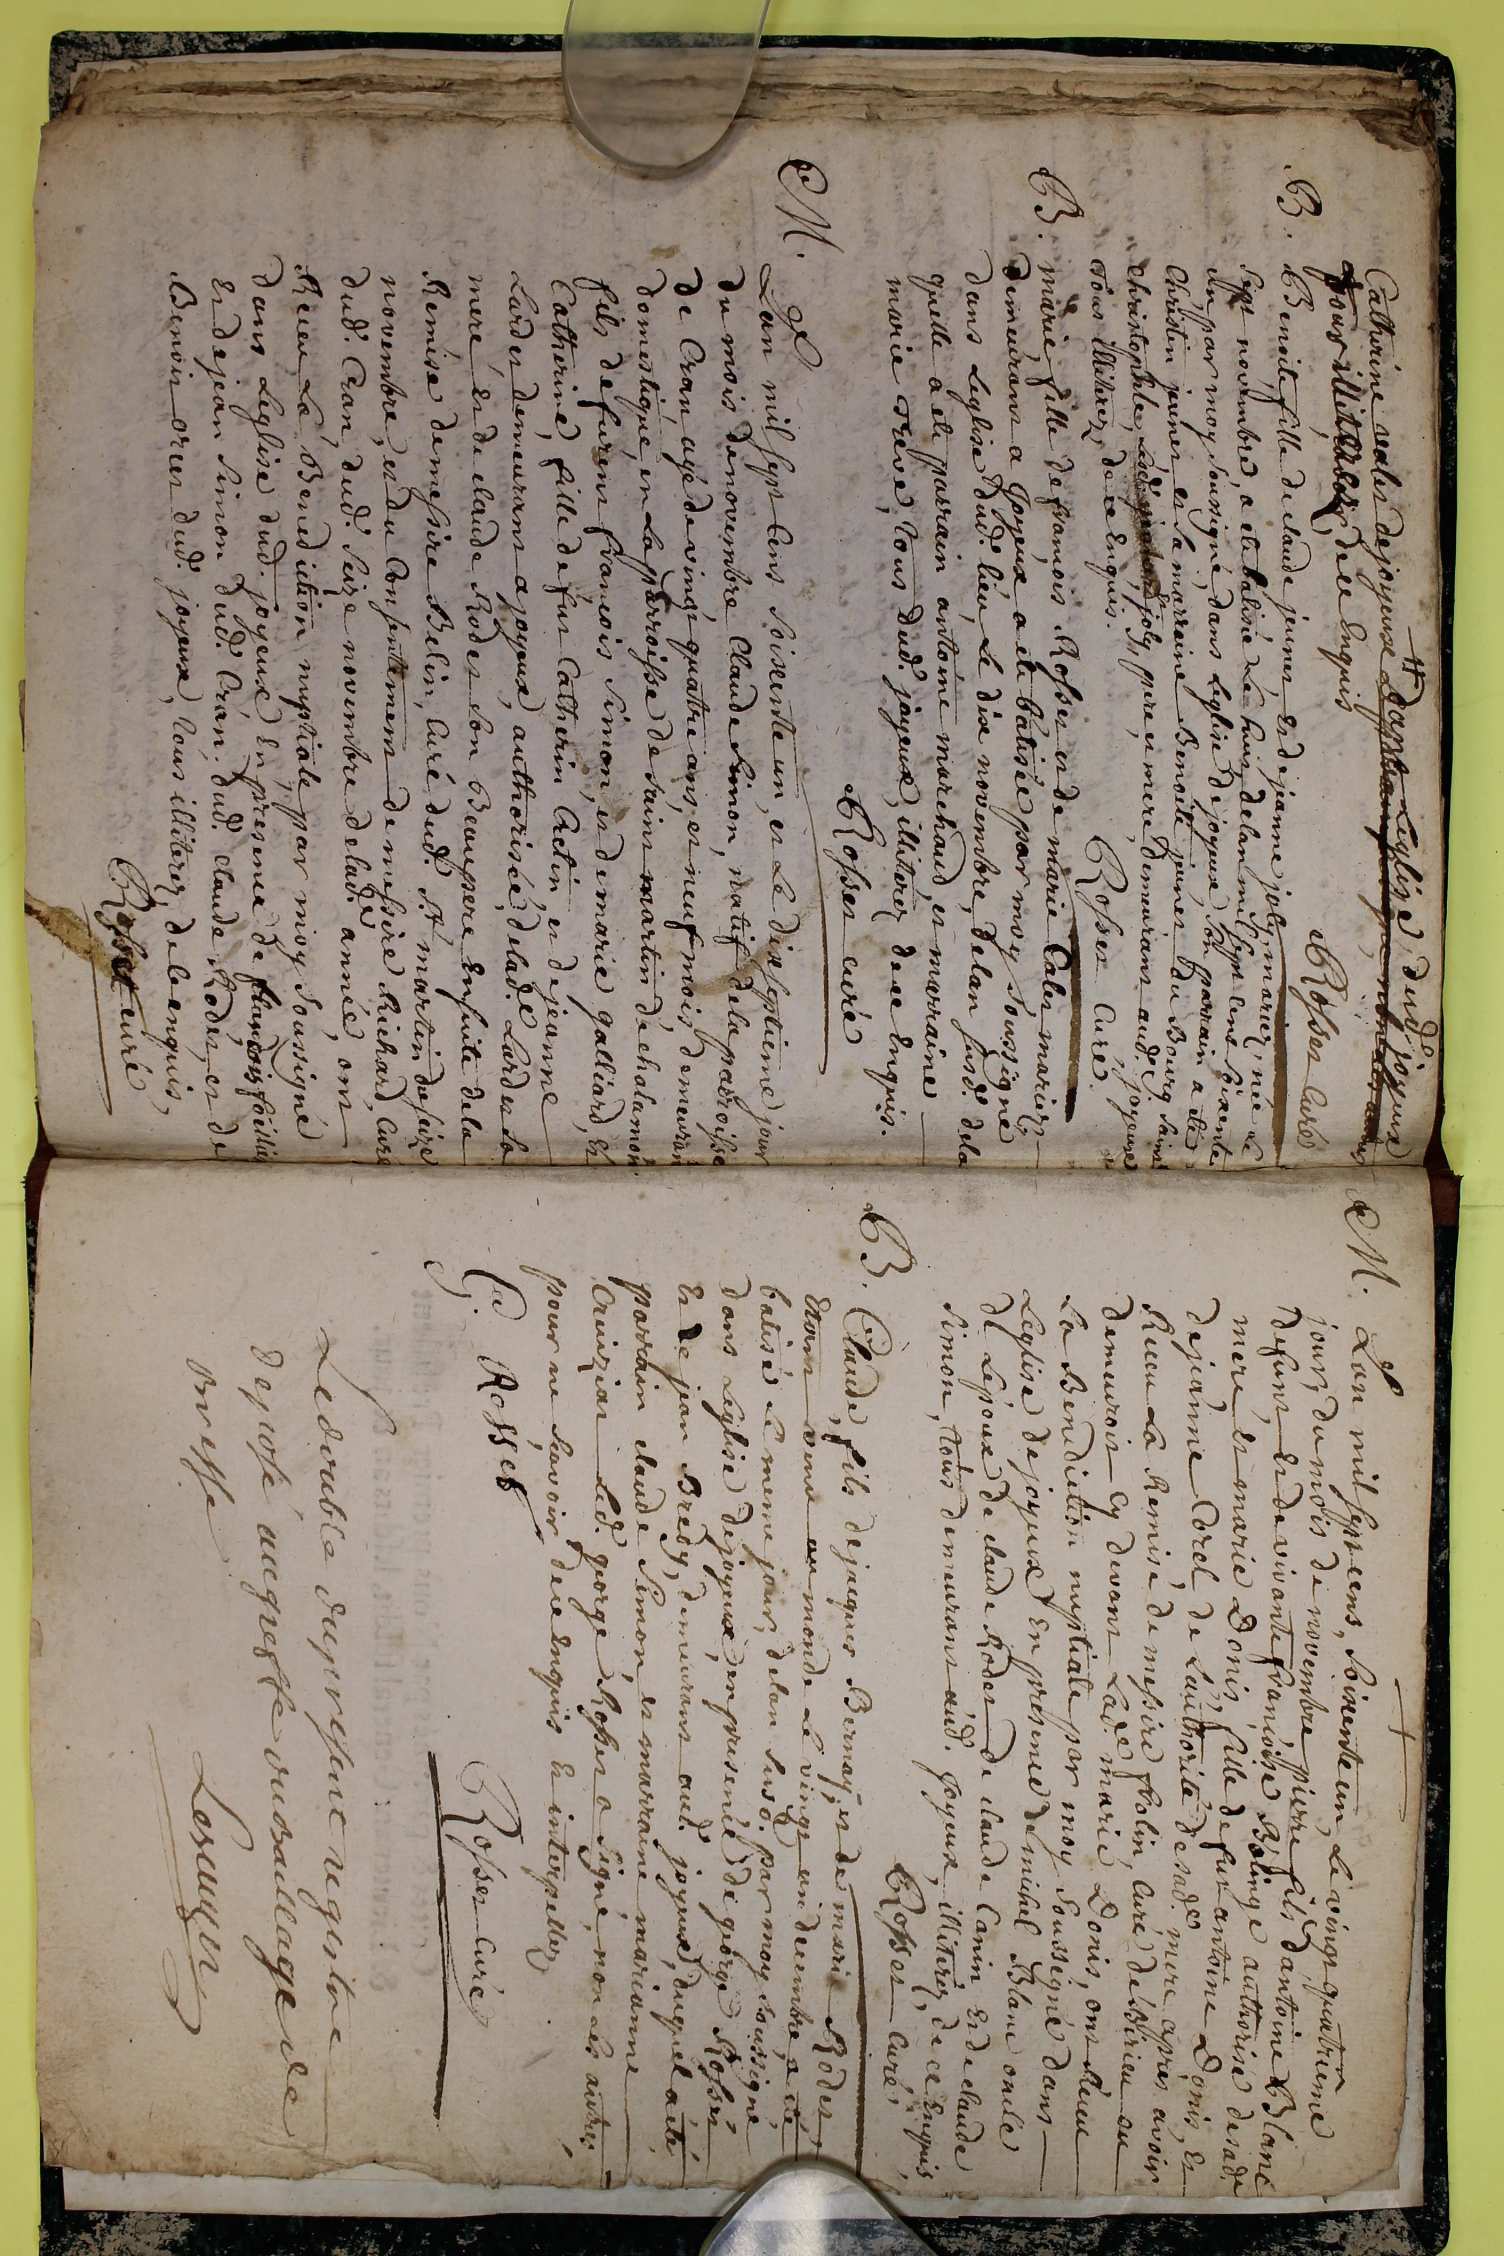 Catherine rodes de joyeux dans Leglise dud. joyeux
tous illitterez, de ce Enquis
Rosset Curé
B. Benoite fille de claude junet, Et de jeanne joly, mariez, née le
sept novembre, a eté batisée Le huit, de lan mil sept cens soixente
un par moy soussigné, dans Leglise de joyeux, son parrain a été
Christin junet et la marreine Benoite junet du Bourg saint
christophle, Lesd. joly pere et mere demeurans aud. joyeux
tous illiterez, de ce Enquis.
Rosset Curé.
B. marie fille de francois Rosset et de marie Calet mariez
demeurans a Joyeux a eté batisée par moy soussigné
dans Leglise dud. lieu, Le dix novembre, de lan susd. de la
quelle a eté parrain antoine marchand, et marraine
marie Treve, tous dud. joyeux, illiterez de ce Enquis.
Rosset curé
M. Lan mil sept cens soixente un, et Le dix septieme jour
du mois de novembre Claude Simon, natif de la parroisse
de Cran agé de vingt quatre ans, et neuf mois, demeurant
domestique, en la parroisse de saint martin de chalamont
fils de furent francois Simon, et de marie galliard, Et
Catherine, fille de fut Catherin Cretin, et de jeanne
Lardet demeurans a joyeux, authorisée, de lad. Lardet sa
mere, et de claude Rodet son Beaupere Ensuite de la
Remise de messire Belin, Curé dud. St martin du seize
novembre, et du Consentement de messire Richard, Curé
dud. Cran, dud. seize novembre de lad. année, ont
Receu La Benediction nuptiale par moy soussigné
dans Leglise dud. joyeux En presence de francois foillie
Et de jean Simon dud. Cran. dud. claude Rodet, et de
Benoit oriet dud. joyeux, tous illiterez, de ce enquis,
Rosset curé
M. Lan mil sept cens, soixente un, Le vingt quattrieme
jour, du mois de novembre pierre fils d'antoine Blanc
defunt, Et de vivante francoise Bolinge authorisé de sade
mere, et marie Donis, fille de fut antoine Donis, Et
de jeanne Corel de Lauthorité de sade. mere apres avoir
Receu La Remise, de messire folin, Curé de Birieu ou
demeuroit Cy devant Lade. marie Donis, ont Receu
La Benediction nuptiale par moy soussigné dans
Leglise de joyeux En presence de michel Blanc oncle
de Lepoux de claude Rodet de claude Canin Et de claude
Simon, tous demeurans aud. joyeux, illiterez, de ce Enquis,
Rosset Curé,
B. Claude, fils de jacques Bernay, et de marie Rodet,
Etant venu au monde Le vingt un decembre, a été
batisé le meme jour, de lan susd. par moy soussigné
dans Leglise de joyeux, en presence de george Rosset
Et de jean Breby, demeurans aud. joyeux, duquel a été
parrain claude Simon, et marraine marianne
Led. george Rosset a signé, non les autres,
pour ne scavoir, de ce Enquis Et interpellez
G. Rosset
Rosset Curé
Le double du present registre
deposé au greffe du baillage de
bresse